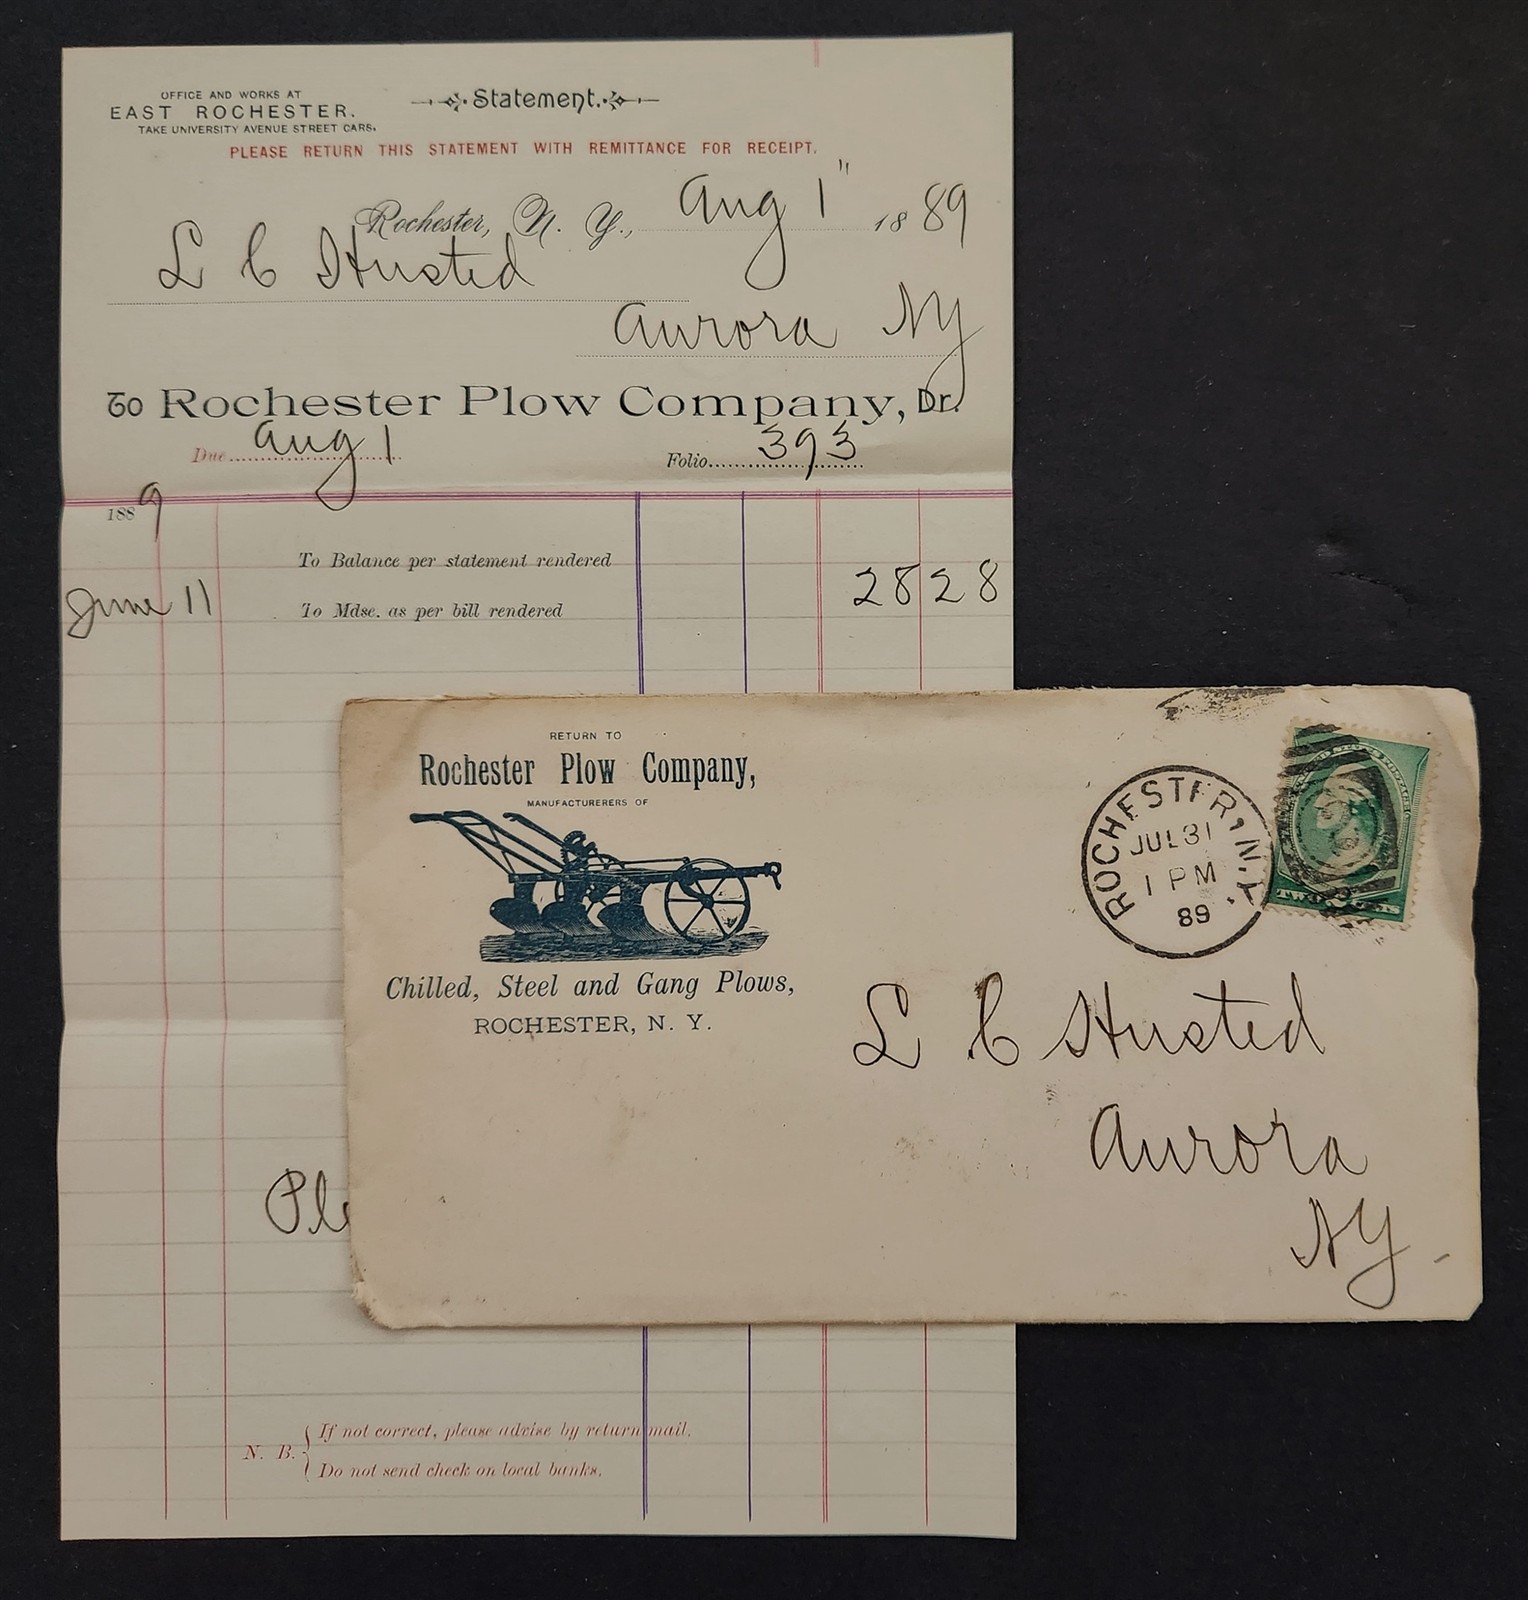 OFFICE AND WORKS AT
EAST ROCHESTER.
TAKE UNIVERSITY AVENUE STREET CARS.
Statement.
PLEASE RETURN THIS STATEMENT WITH REMITTANCE FOR RECEIPT.
Rochester, N. Y., Aug 1" 1889
L C Husted
Aurora NY
To Rochester Plow Company, Dr.
Due Aug 1 Folio 393
1889
To Balance per statement rendered
June 11 To Mdse. as per bill rendered 28 28
Ple
N. B. { If not correct, please advise by return mail.
Do not send check on local banks.
RETURN TO
Rochester Plow Company,
MANUFACTURERERS OF
Chilled, Steel and Gang Plows,
ROCHESTER, N. Y.
ROCHESTER, N.Y.
JUL 31
1 PM
89
TWO CENTS
L C Husted
Aurora
NY